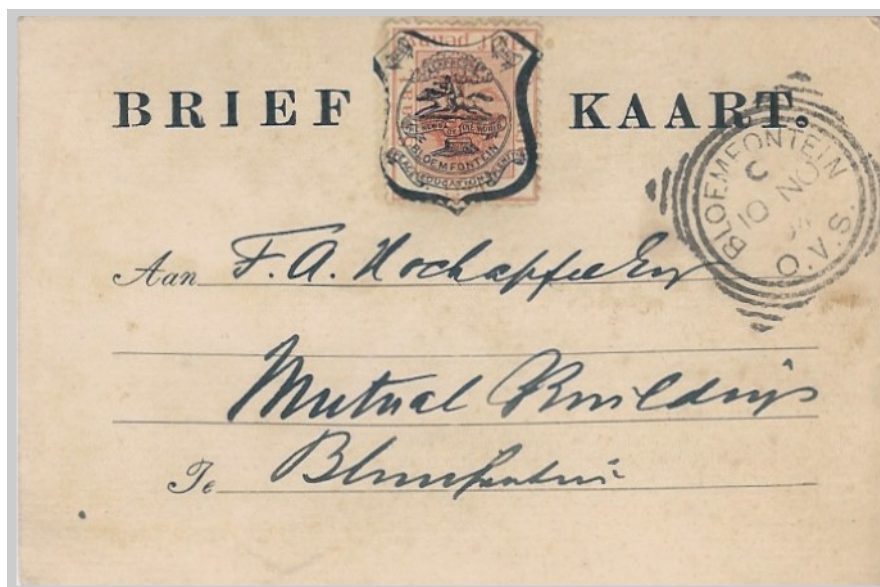 BRIEF KAART.
BLOEMFONTEIN
BLOEMFONTEIN
C
10 NO
O.V.S.
Aan F. A.
Mutual Buildings
Te Bloemfontein